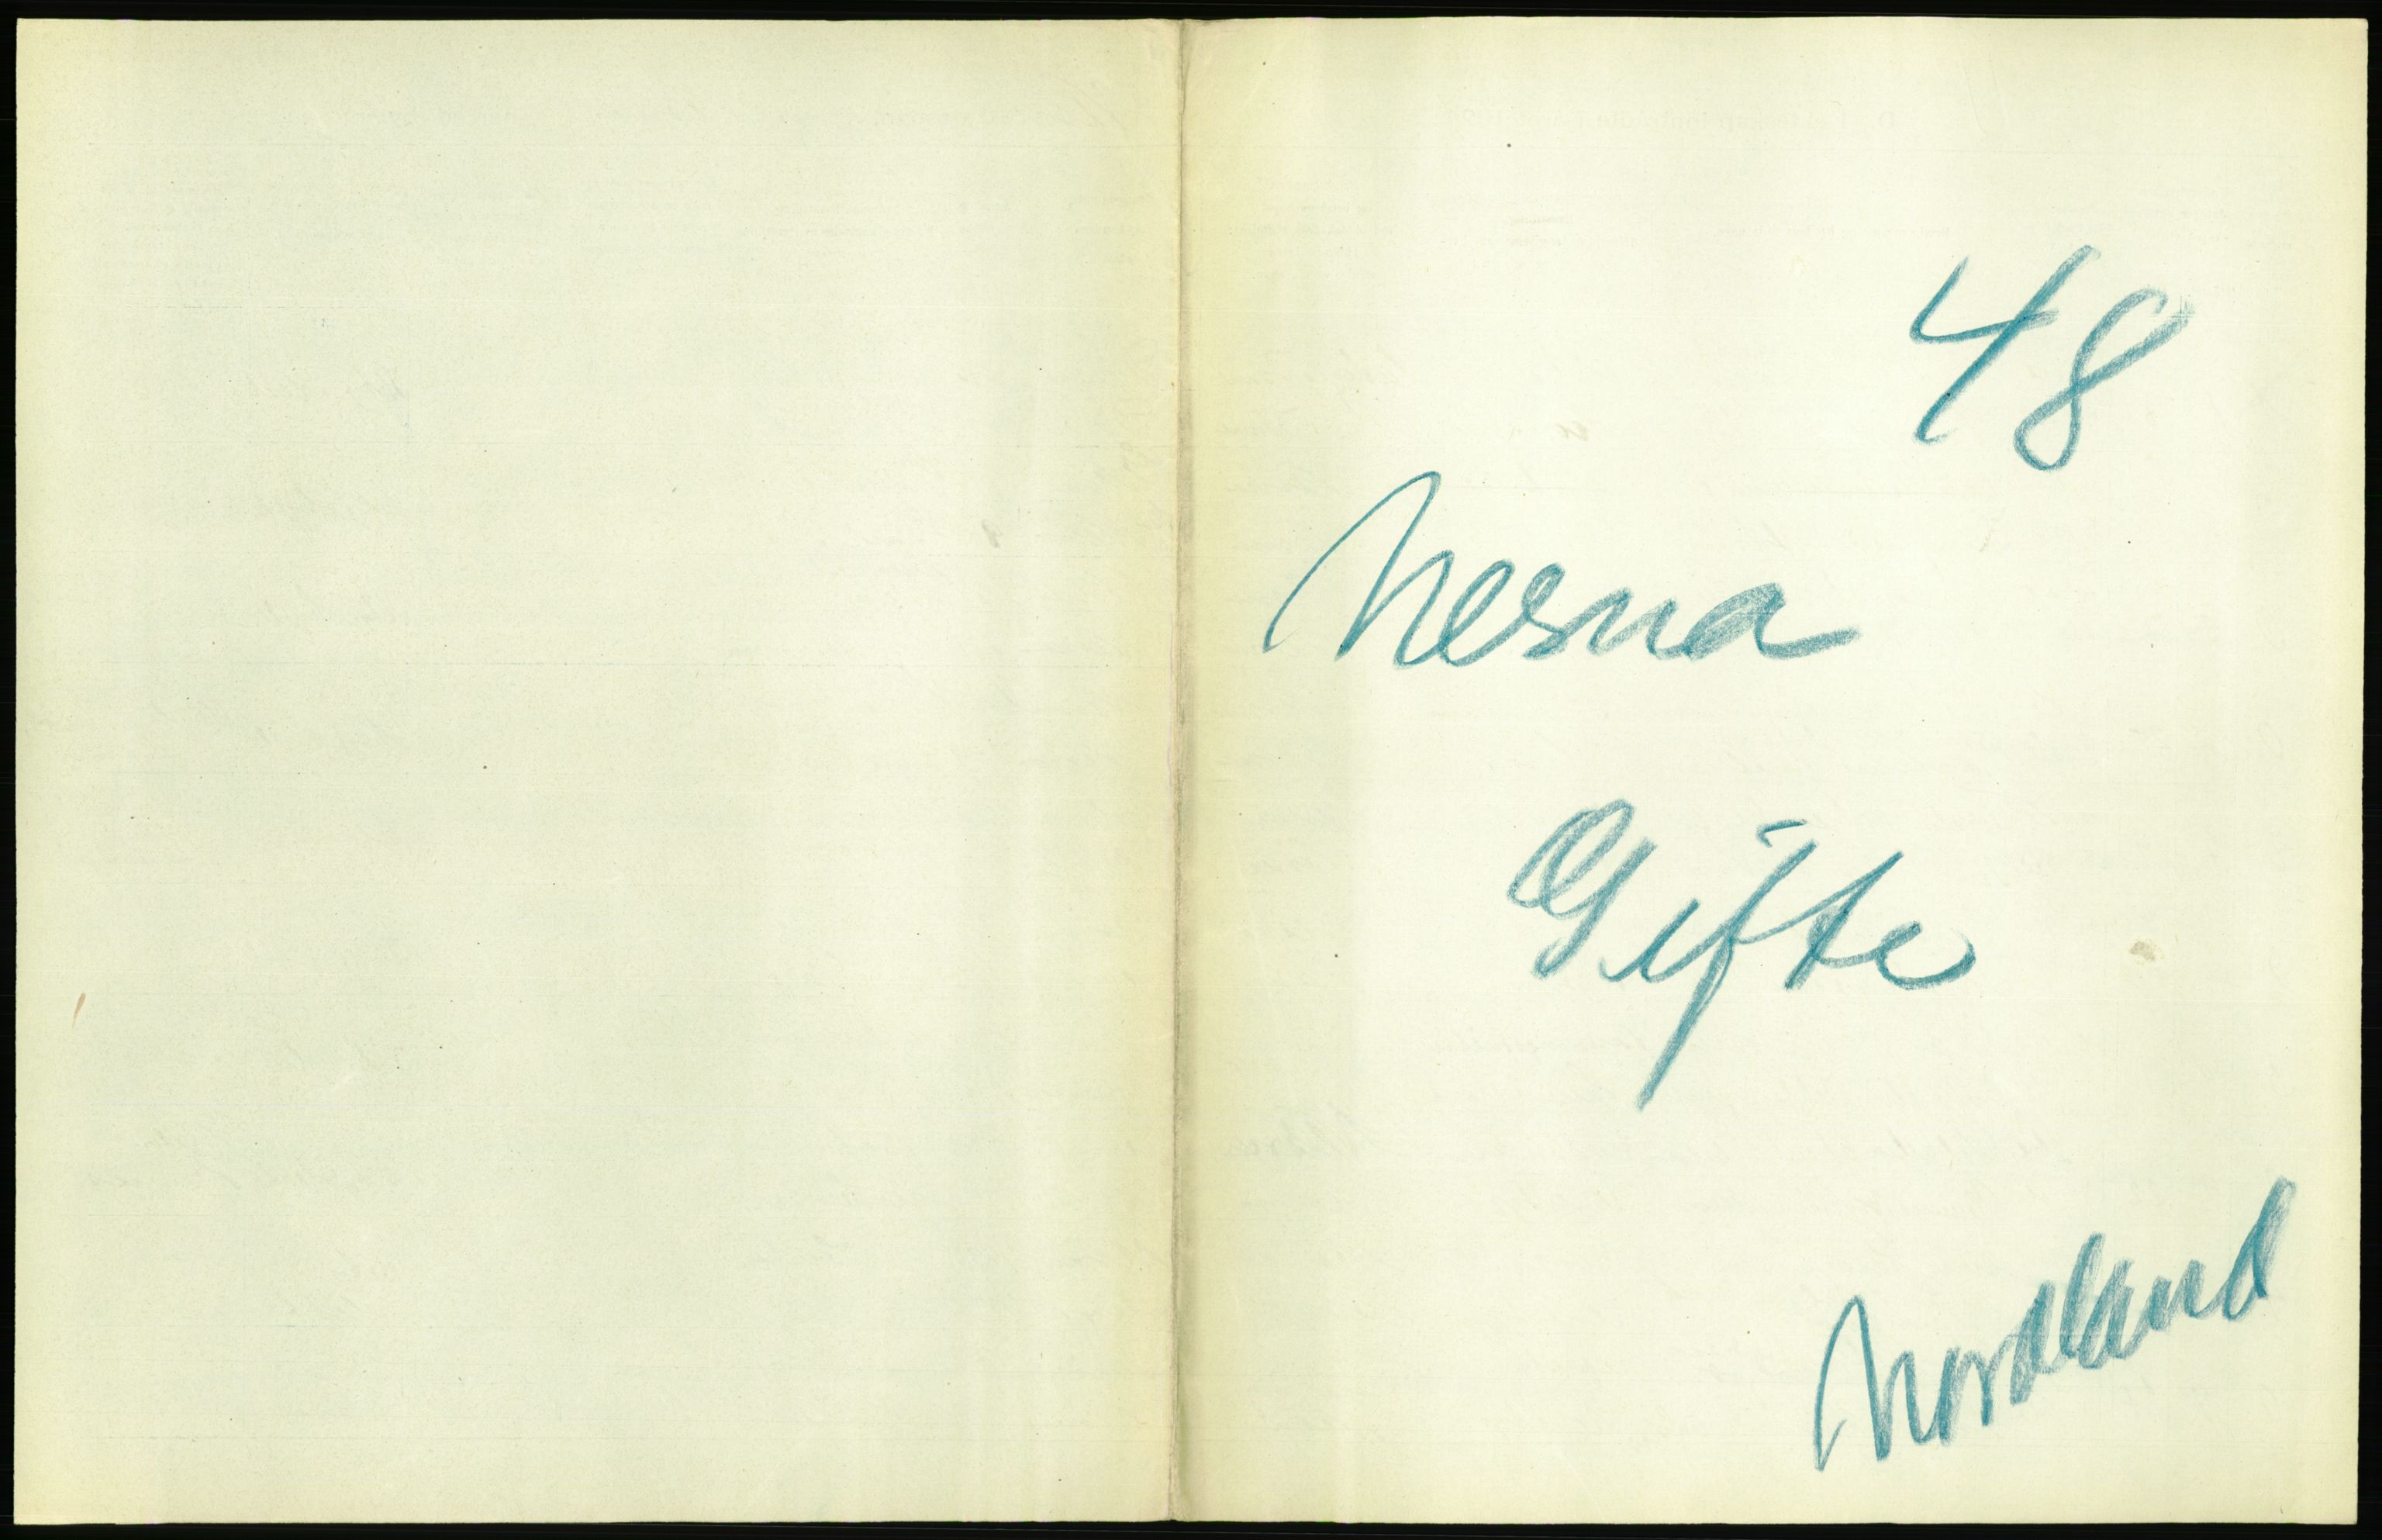 48
Nesna
Gifte
Nordland